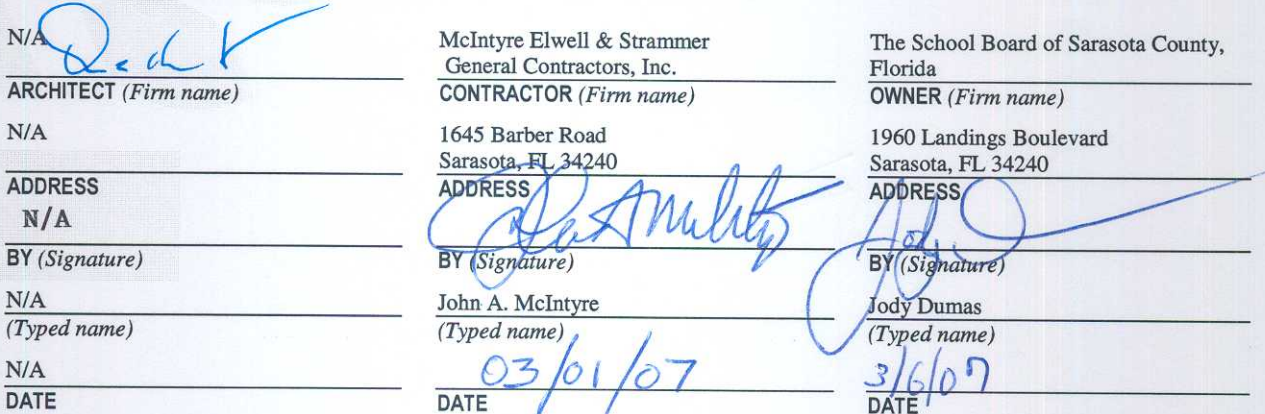 N/A
ARCHITECT (Firm name)
N/A
ADDRESS
N/A
BY (Signature)
N/A
(Typed name)
N/A
DATE
McIntyre Elwell & Strammer
General Contractors, Inc.
CONTRACTOR (Firm name)
1645 Barber Road
Sarasota, FL 34240
ADDRESS
BY (Signature)
John A. McIntyre
(Typed name)
03/01/07
DATE
The School Board of Sarasota County,
Florida
OWNER (Firm name)
1960 Landings Boulevard
Sarasota, FL 34240
ADDRESS
BY (Signature)
Jody Dumas
(Typed name)
3/6/07
DATE